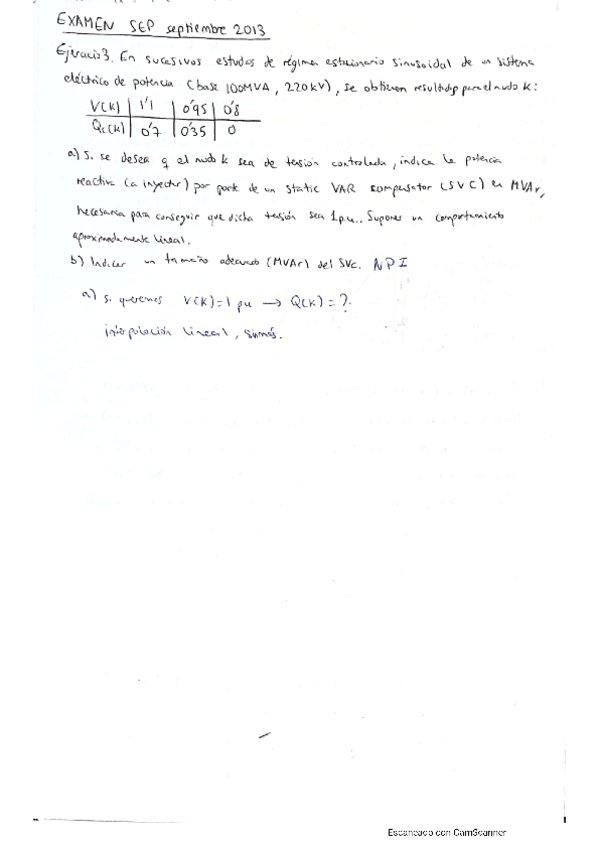 EXAMEN SEP septiembre 2013
Ejercicio 3. En sucesivos estudios de régimen estacionario sinusoidal de un sistema
eléctrico de potencia (base 100MVA, 220kV), se obtienen resultados para el nudo k:
V(K) | 1'1 | 0'95 | 0'8
Qc(K) | 0'7 | 0'35 | 0
a) Si se desea q el nudo k sea de tensión controlada, indica la potencia
reactiva (a inyectar) por parte de un Static VAR compensator (SVC) en MVAr,
necesaria para conseguir que dicha tensión sea 1 p.u.. Suponer un comportamiento
aproximadamente lineal.
b) Indicar un tamaño adecuado (MVAr) del SVC. NPI
a) Si queremos V(K)=1 pu → Q(K) = ?
interpolación lineal,
Escaneado con CamScanner